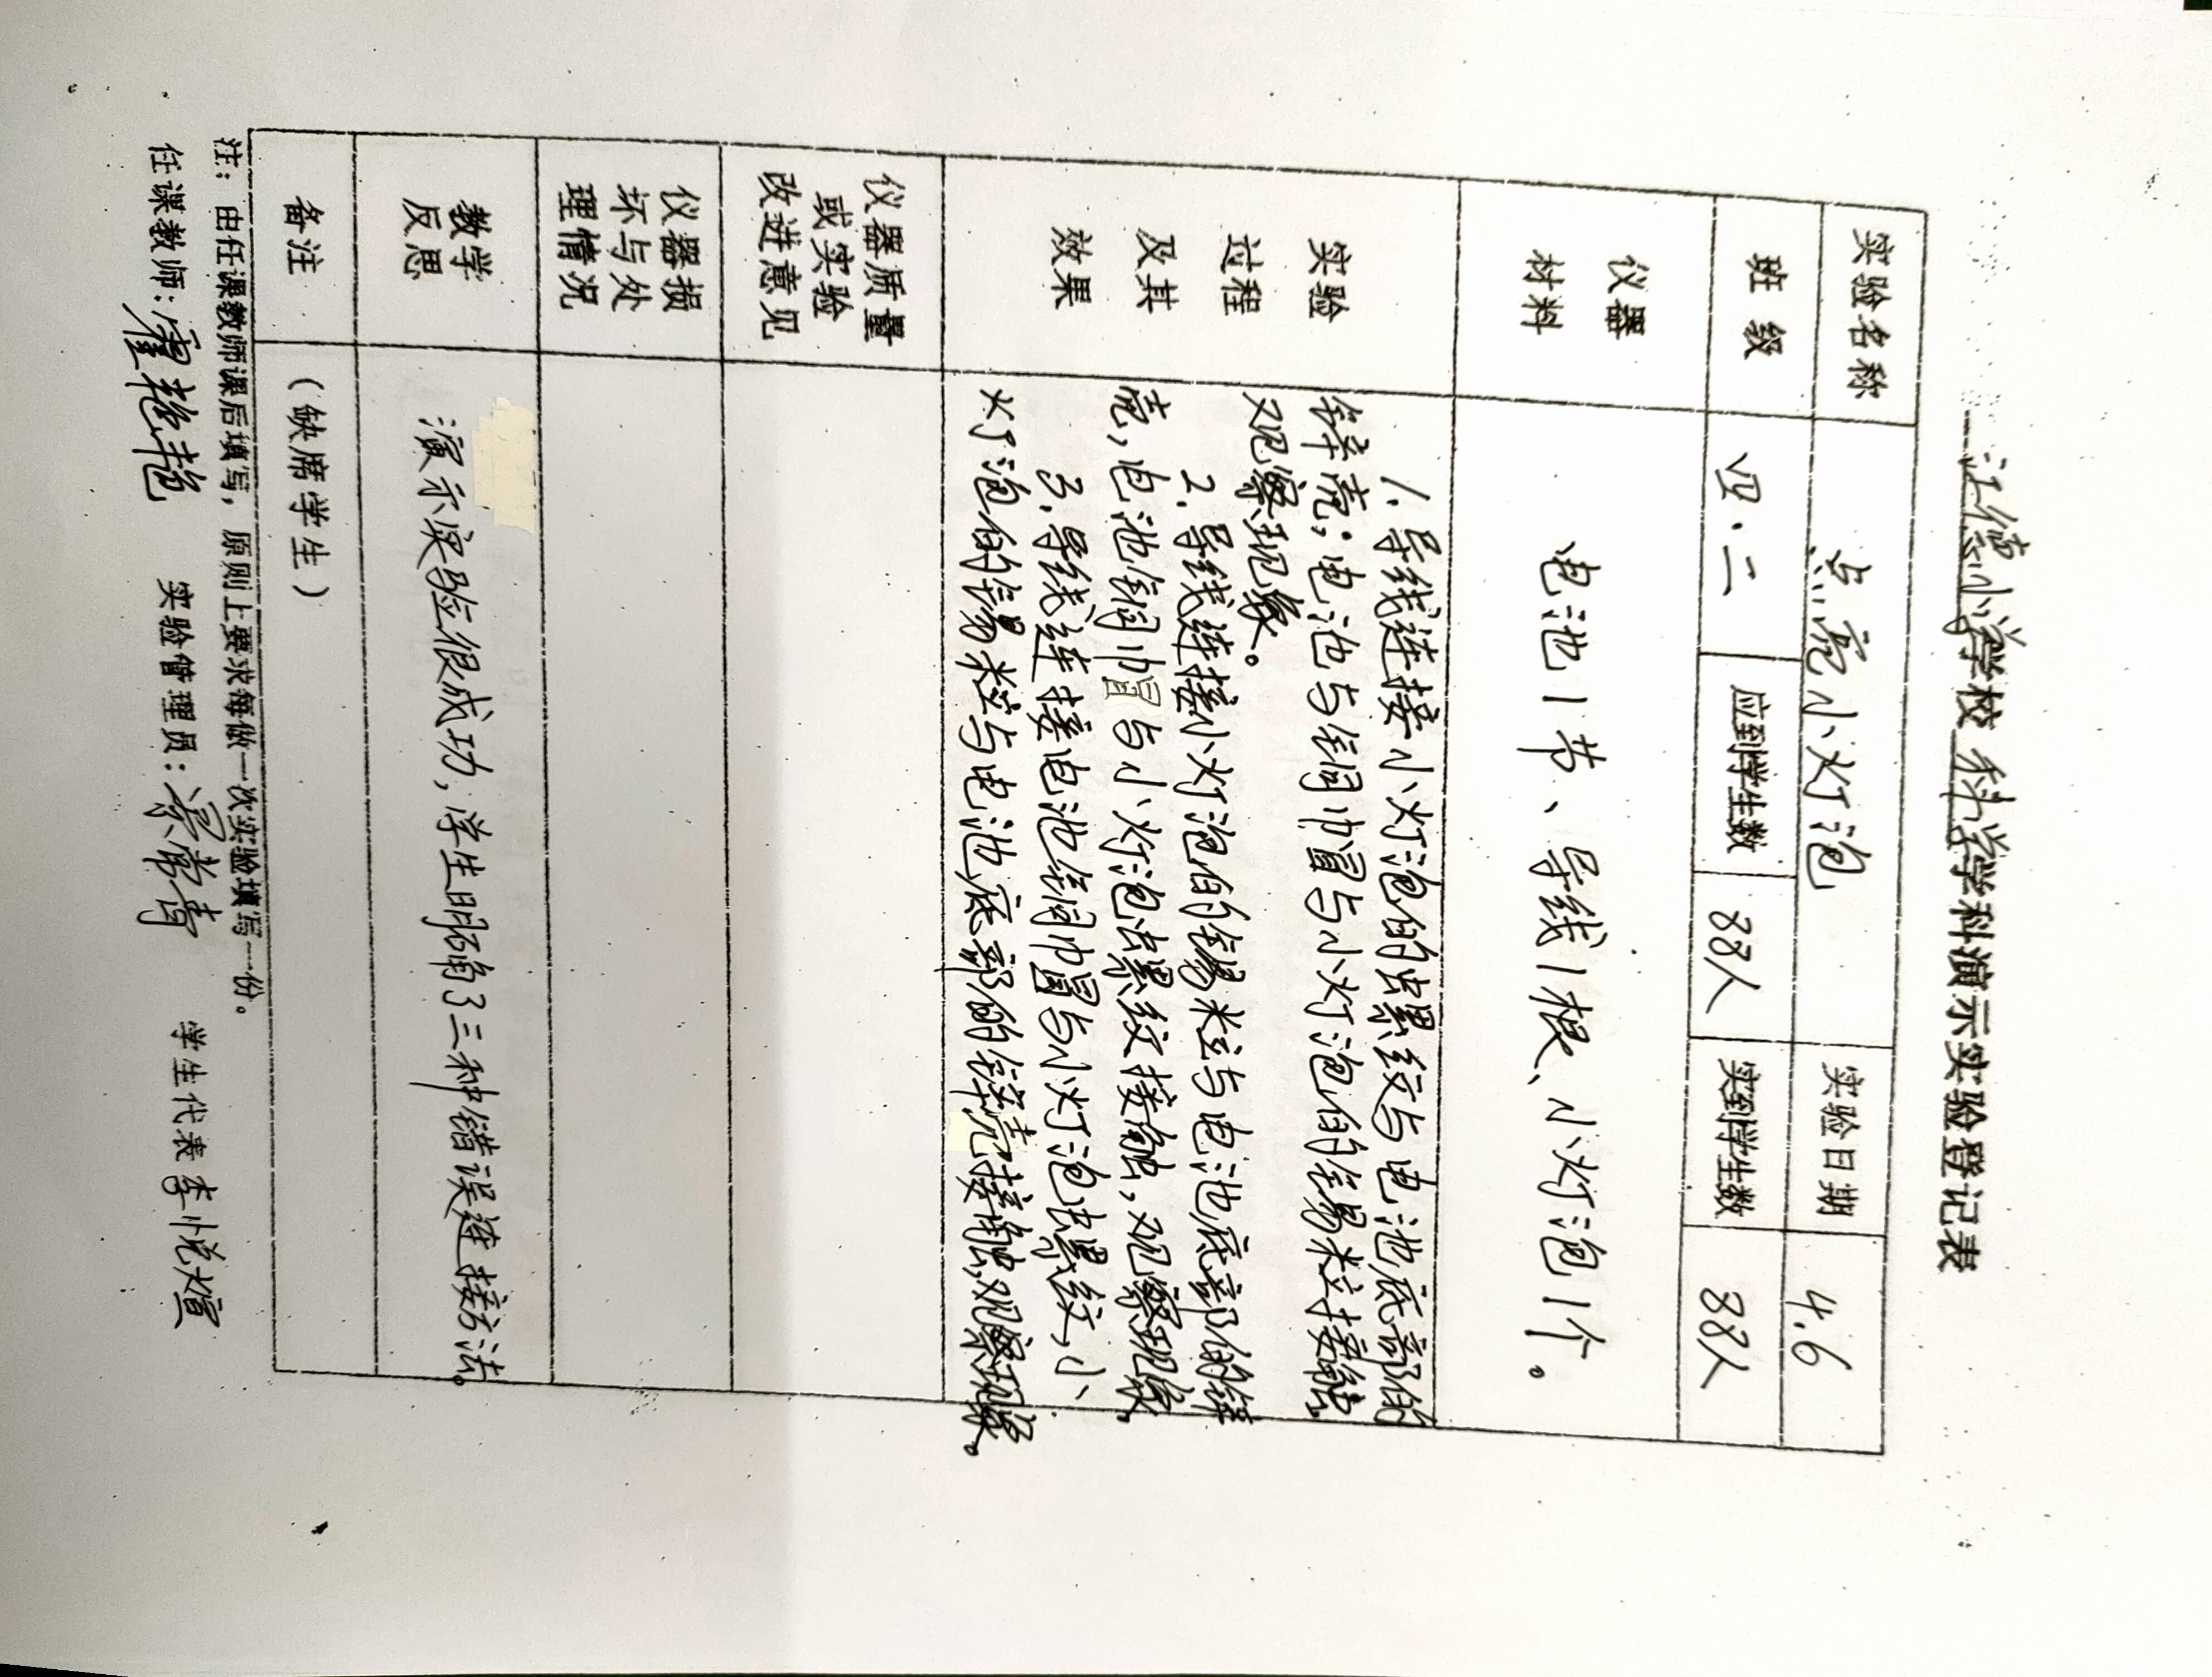 江德小学校 科学学科演示实验登记表
实验名称 点亮小灯泡 实验日期 4.6
班级 四.二 应到学生数 38人 实到学生数 38人
仪器
材料
电池1节、导线1根、小灯泡1个。
实验
过程
及其
效果
1.导线连接小灯泡的螺纹与电池底部的
锌壳;电池与铜帽与小灯泡的锡粒接触。
观察现象。
2.导线连接小灯泡的锡粒与电池底部的锌
壳,电池铜帽与小灯泡螺纹接触,观察现象。
3.导线连接电池铜帽与小灯泡螺纹,小
灯泡的锡粒与电池底部的锌壳接触,观察现象。
仪器质量
或实验
改进意见
仪器损
坏与处
理情况
教学
反思
演示实验很成功,学生明确了三种错误连接方法。
备注 (缺席学生)
注:由任课教师课后填写,原则上要求每做一次实验填写一份。
任课教师: 艳艳 实验管理员: 学生代表 李悦煊